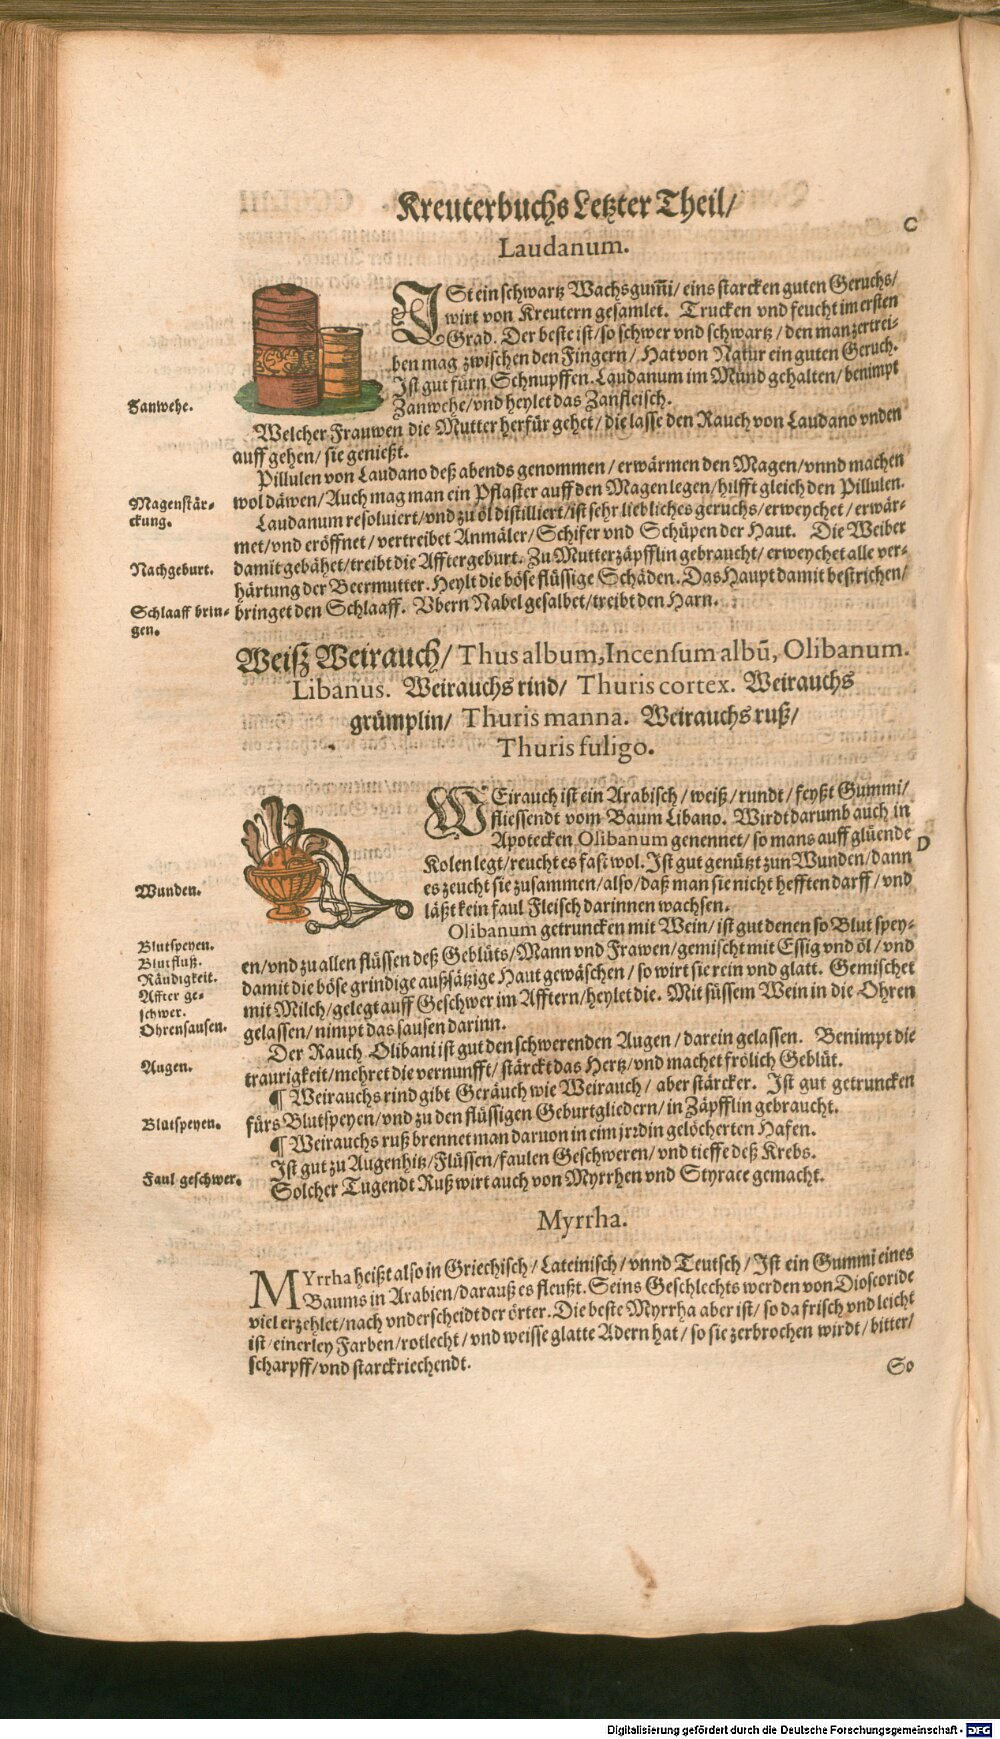 Kreuterbuchs Letzter Theil/
C
Laudanum.
ISt ein schwartz Wachsgum̄i/ eins starcken guten Geruchs/
wirt von Kreutern gesamlet. Trucken vnd feucht im ersten
Grad. Der beste ist/ so schwer vnd schwartz/ den man zertrei-
ben mag zwischen den Fingern/ Hat von Natur ein guten Geruch.
Ist gut fürn Schnupffen. Laudanum im Mund gehalten/ benimpt
Zanwehe.
Zanwehe/ vnd heylet das Zanfleisch.
Welcher Frauwen die Mutter herfür gehet/ die lasse den Rauch von Laudano vnden
auff gehen/ sie genießt.
Pillulen von Laudano deß abends genommen/ erwärmen den Magen/ vnnd machen
Magenstär-
ckung.
wol däwen/ Auch mag man ein Pflaster auff den Magen legen/ hilfft gleich den Pillulen.
Laudanum resoluiert/ vnd zu öl distilliert/ ist sehr liebliches geruchs/ erweychet/ erwär-
met/ vnd eröffnet/ vertreibet Anmäler/ Schifer vnd Schüpen der Haut. Die Weiber
Nachgeburt.
damit gebähet/ treibt die Afftergeburt. Zu Mutterzäpfflin gebraucht/ erweychet alle ver-
härtung der Beermutter. Heylt die böse flüssige Schäden. Das Haupt damit bestrichen/
Schlaaff brin-
gen.
bringet den Schlaaff. Vbern Nabel gesalbet/ treibt den Harn.
Weiß Weirauch/ Thus album, Incensum albū, Olibanum.
Libanus. Weirauchs rind/ Thuris cortex. Weirauchs
grümplin/ Thuris manna. Weirauchs ruß/
Thuris fuligo.
WEirauch ist ein Arabisch/ weiß/ rundt/ feyßt Gummi/
fliessendt vom Baum Libano. Wirdt darumb auch in
Apotecken Olibanum genennet/ so mans auff glüende
D
Kolen legt/ reucht es fast wol. Ist gut genützt zun Wunden/ dann
Wunden.
es zeucht sie zusammen/ also/ daß man sie nicht hefften darff/ vnd
läßt kein faul Fleisch darinnen wachsen.
Olibanum getruncken mit Wein/ ist gut denen so Blut spey-
Blutspeyen.
Blutfluß.
Räudigkeit.
Affter ge-
schwer.
Ohrensausen.
en/ vnd zu allen flüssen deß Geblüts/ Mann vnd Frawen/ gemischt mit Essig vnd öl/ vnd
damit die böse grindige außsätzige Haut gewäschen/ so wirt sie rein vnd glatt. Gemischet
mit Milch/ gelegt auff Geschwer im Afftern/ heylet die. Mit süssem Wein in die Ohren
gelassen/ nimpt das sausen darinn.
Der Rauch Olibani ist gut den schwerenden Augen/ darein gelassen. Benimpt die
Augen.
traurigkeit/ mehret die vernunfft/ stärckt das Hertz/ vnd machet frölich Geblüt.
¶ Weirauchs rind gibt Geräuch wie Weirauch/ aber stärcker. Ist gut getruncken
Blutspeyen.
fürs Blutspeyen/ vnd zu den flüssigen Geburtgliedern/ in Zäpfflin gebraucht.
¶ Weirauchs ruß brennet man daruon in eim jrrdin gelöcherten Hafen.
Ist gut zu Augenhitz/ Flüssen/ faulen Geschweren/ vnd tieffe deß Krebs.
Faul geschwer.
Solcher Tugendt Ruß wirt auch von Myrrhen vnd Styrace gemacht.
Myrrha.
MYrrha heißt also in Griechisch/ Lateinisch/ vnnd Teutsch/ Ist ein Gummi eines
Baums in Arabien/ darauß es fleußt. Seins Geschlechts werden von Dioscoride
viel erzehlet/ nach vnderscheidt der örter. Die beste Myrrha aber ist/ so da frisch vnd leicht
ist/ einerley Farben/ rotlecht/ vnd weisse glatte Adern hat/ so sie zerbrochen wirdt/ bitter/
scharpff/ vnd starckriechendt.
So
Digitalisierung gefördert durch die Deutsche Forschungsgemeinschaft - DFG